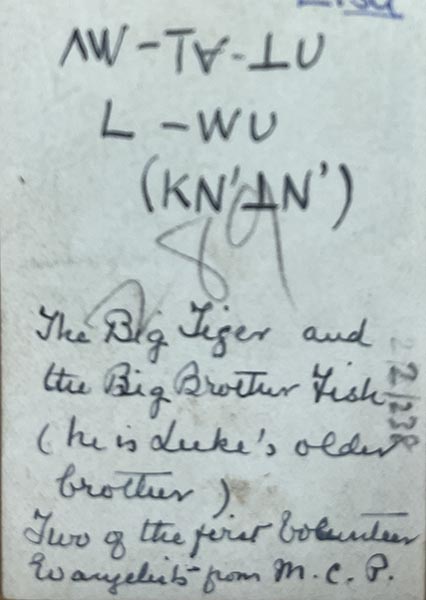 ꓥꓪ-ꓔꓯ-ꓕꓴ
ꓡ -ꓪꓴ
(ꓗꓠ'ꓕꓠ')
89
The Big Tiger and
the Big Brother Fish
(he is Luke's older
brother)
Two of the first Volunteer
Evangelists from M. C. P.
2/238